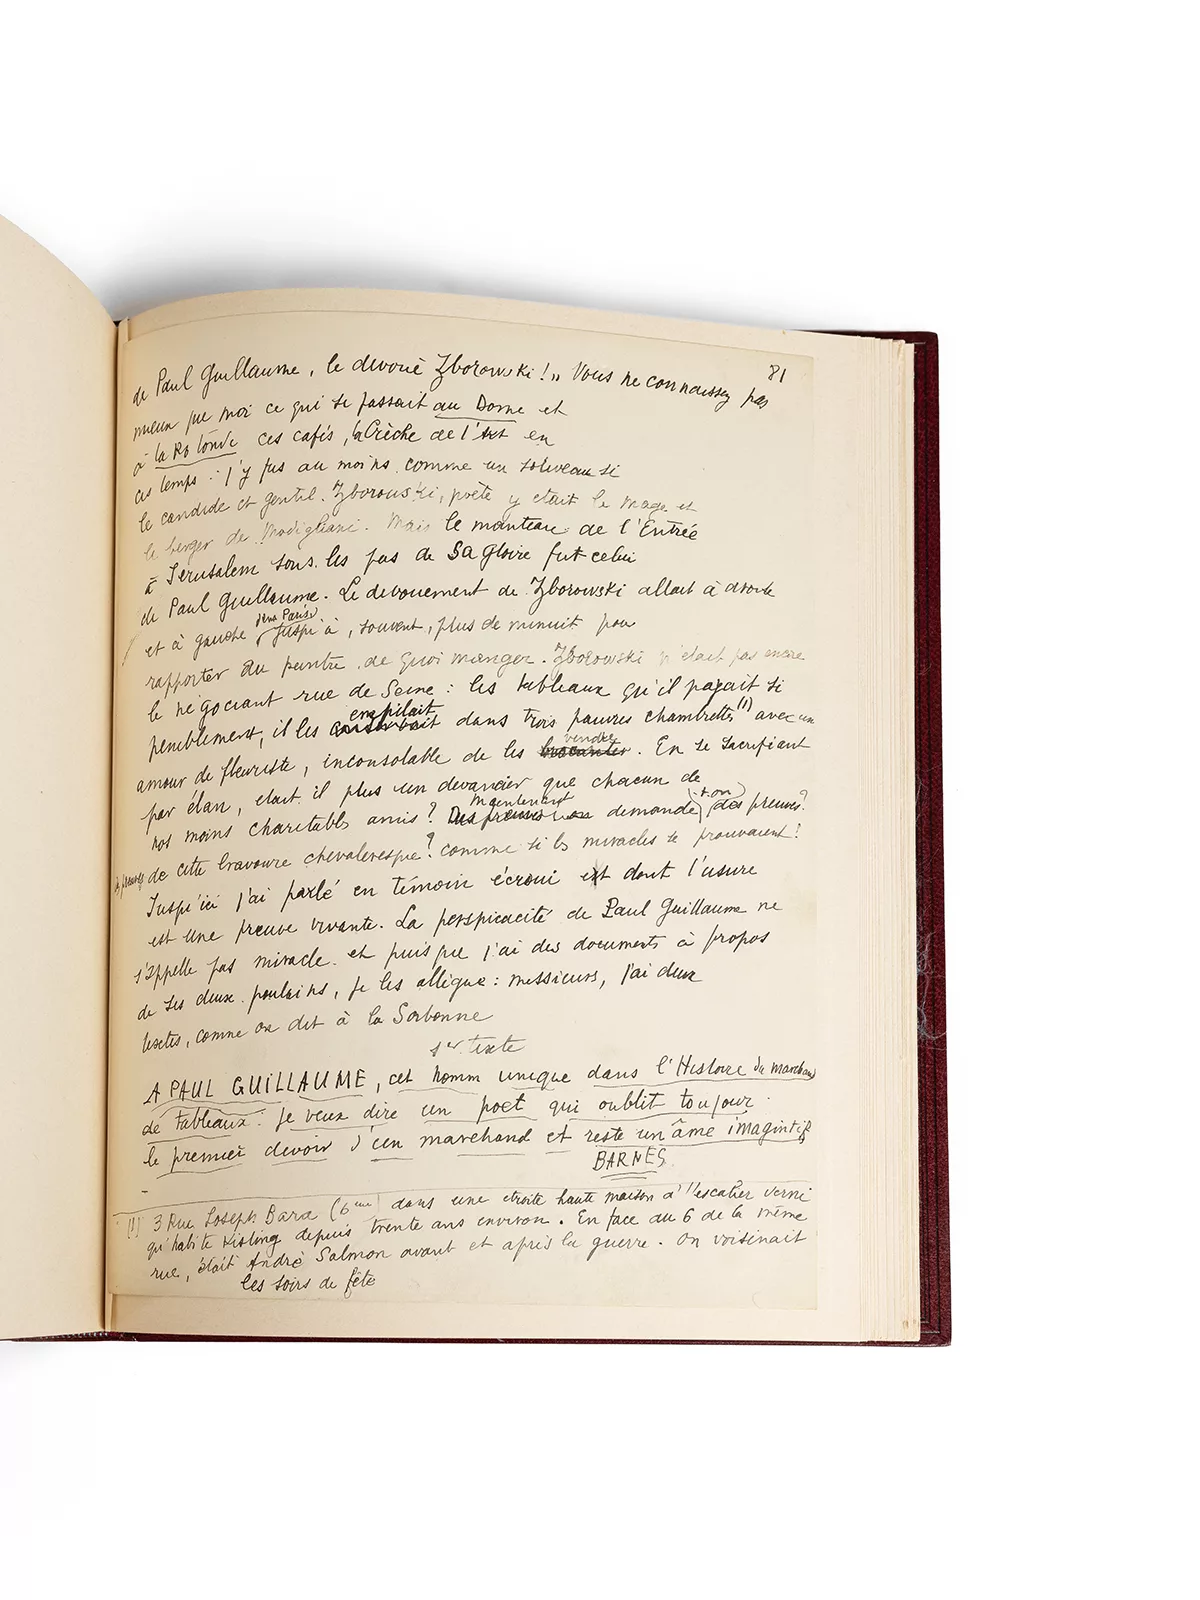 81
de Paul Guillaume, le devoué Zborowski! » Vous ne connaissez pas
mieux que moi ce qui se passait au Dome et
à la Rotonde ces cafés, la Crèche de l'Art en
ces temps : j'y fus au moins comme un soliveau si
le candide et gentil Zborowski, poète y etait le mage et
le berger de Modigliani. Mais le manteau de l'Entrée
à Jerusalem sous les pas de sa gloire fut celui
de Paul Guillaume. Le devouement de Zborowski allait à droite
et à gauche dans Paris jusqu'à, souvent, plus de minuit pour
rapporter au peintre de quoi manger. Zborowski n'etait pas encore
le négociant rue de Seine : les tableaux qu'il payait si
peniblement, il les empilait dans trois pauvres chambrettes (1) avec un
amour de fleuriste, inconsolable de les vendre. En se sacrifiant
par élan, etait il plus un devancier que chacun de
nos moins charitables amis? Maintenant demande-t-on des preuves?
des preuves de cette bravoure chevaleresque? comme si les miracles se prouvaient!
Jusqu'ici j'ai parlé en témoin écroui et dont l'usure
est une preuve vivante. La perspicacité de Paul Guillaume ne
s'appelle pas miracle et puisque j'ai des documents à propos
de ses deux poulains, je les allègue : messieurs, j'ai deux
textes, comme on dit à la Sorbonne
1er texte
A PAUL GUILLAUME, cet homm unique dans l'Histoire du marchand
de tableaux : je veux dire un poet qui oublit toujour
le premier devoir d'un marchand et reste un âme imagintif
BARNES
(1) 3 Rue Joseph Bara (6eme) dans une etroite haute maison à l'escalier verni
qu'habite Kisling depuis trente ans environ. En face au 6 de la même
rue, était André Salmon avant et après la guerre. On voisinait
les soirs de fête